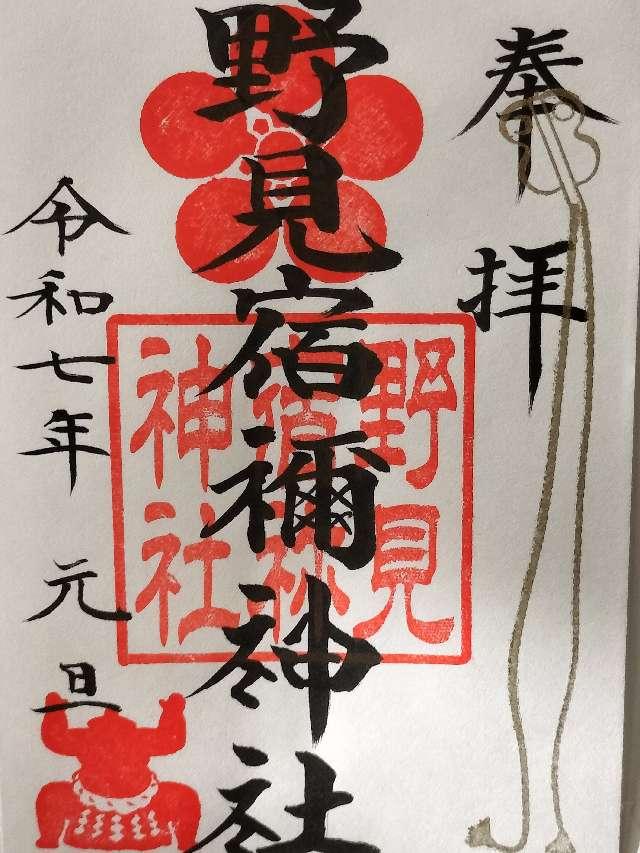 奉拝
野見宿禰神社
野見
宿祢
神社
令和七年 元旦